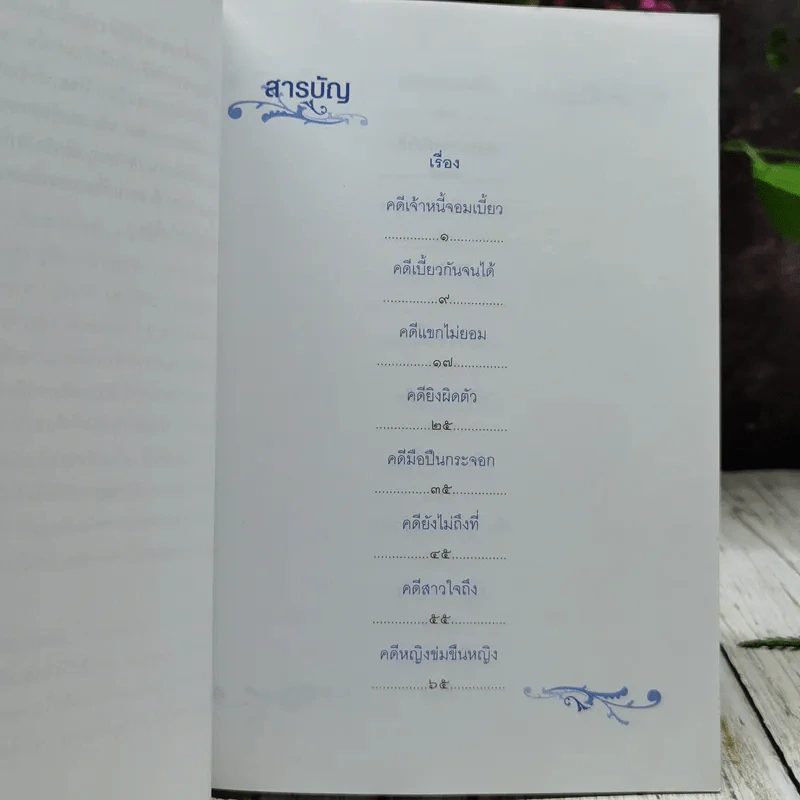 สารบัญ
เรื่อง
คดีเจ้าหนี้จอมเบี้ยว
...............๑...............
คดีเบี้ยวกันจนได้
...............๙...............
คดีแขกไม่ยอม
...............๑๗...............
คดียิงผิดตัว
...............๒๕...............
คดีมือปืนกระจอก
...............๓๕...............
คดียังไม่ถึงที่
...............๔๕...............
คดีสาวใจถึง
...............๕๕...............
คดีหญิงข่มขืนหญิง
...............๖๕...............